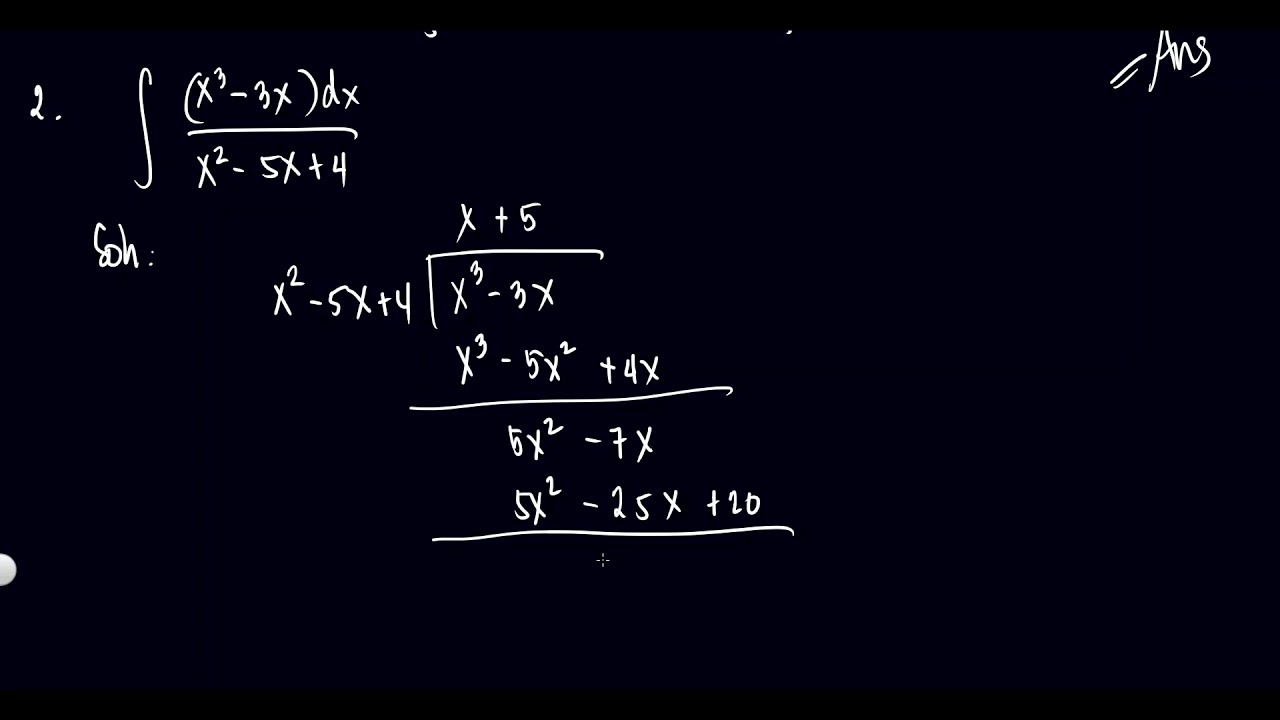 = Ans
2. ∫ (x³ - 3x)dx
x² - 5x + 4
Soln:
x + 5
x² - 5x + 4 x³ - 3x
x³ - 5x² + 4x
5x² - 7x
5x² - 25x + 20